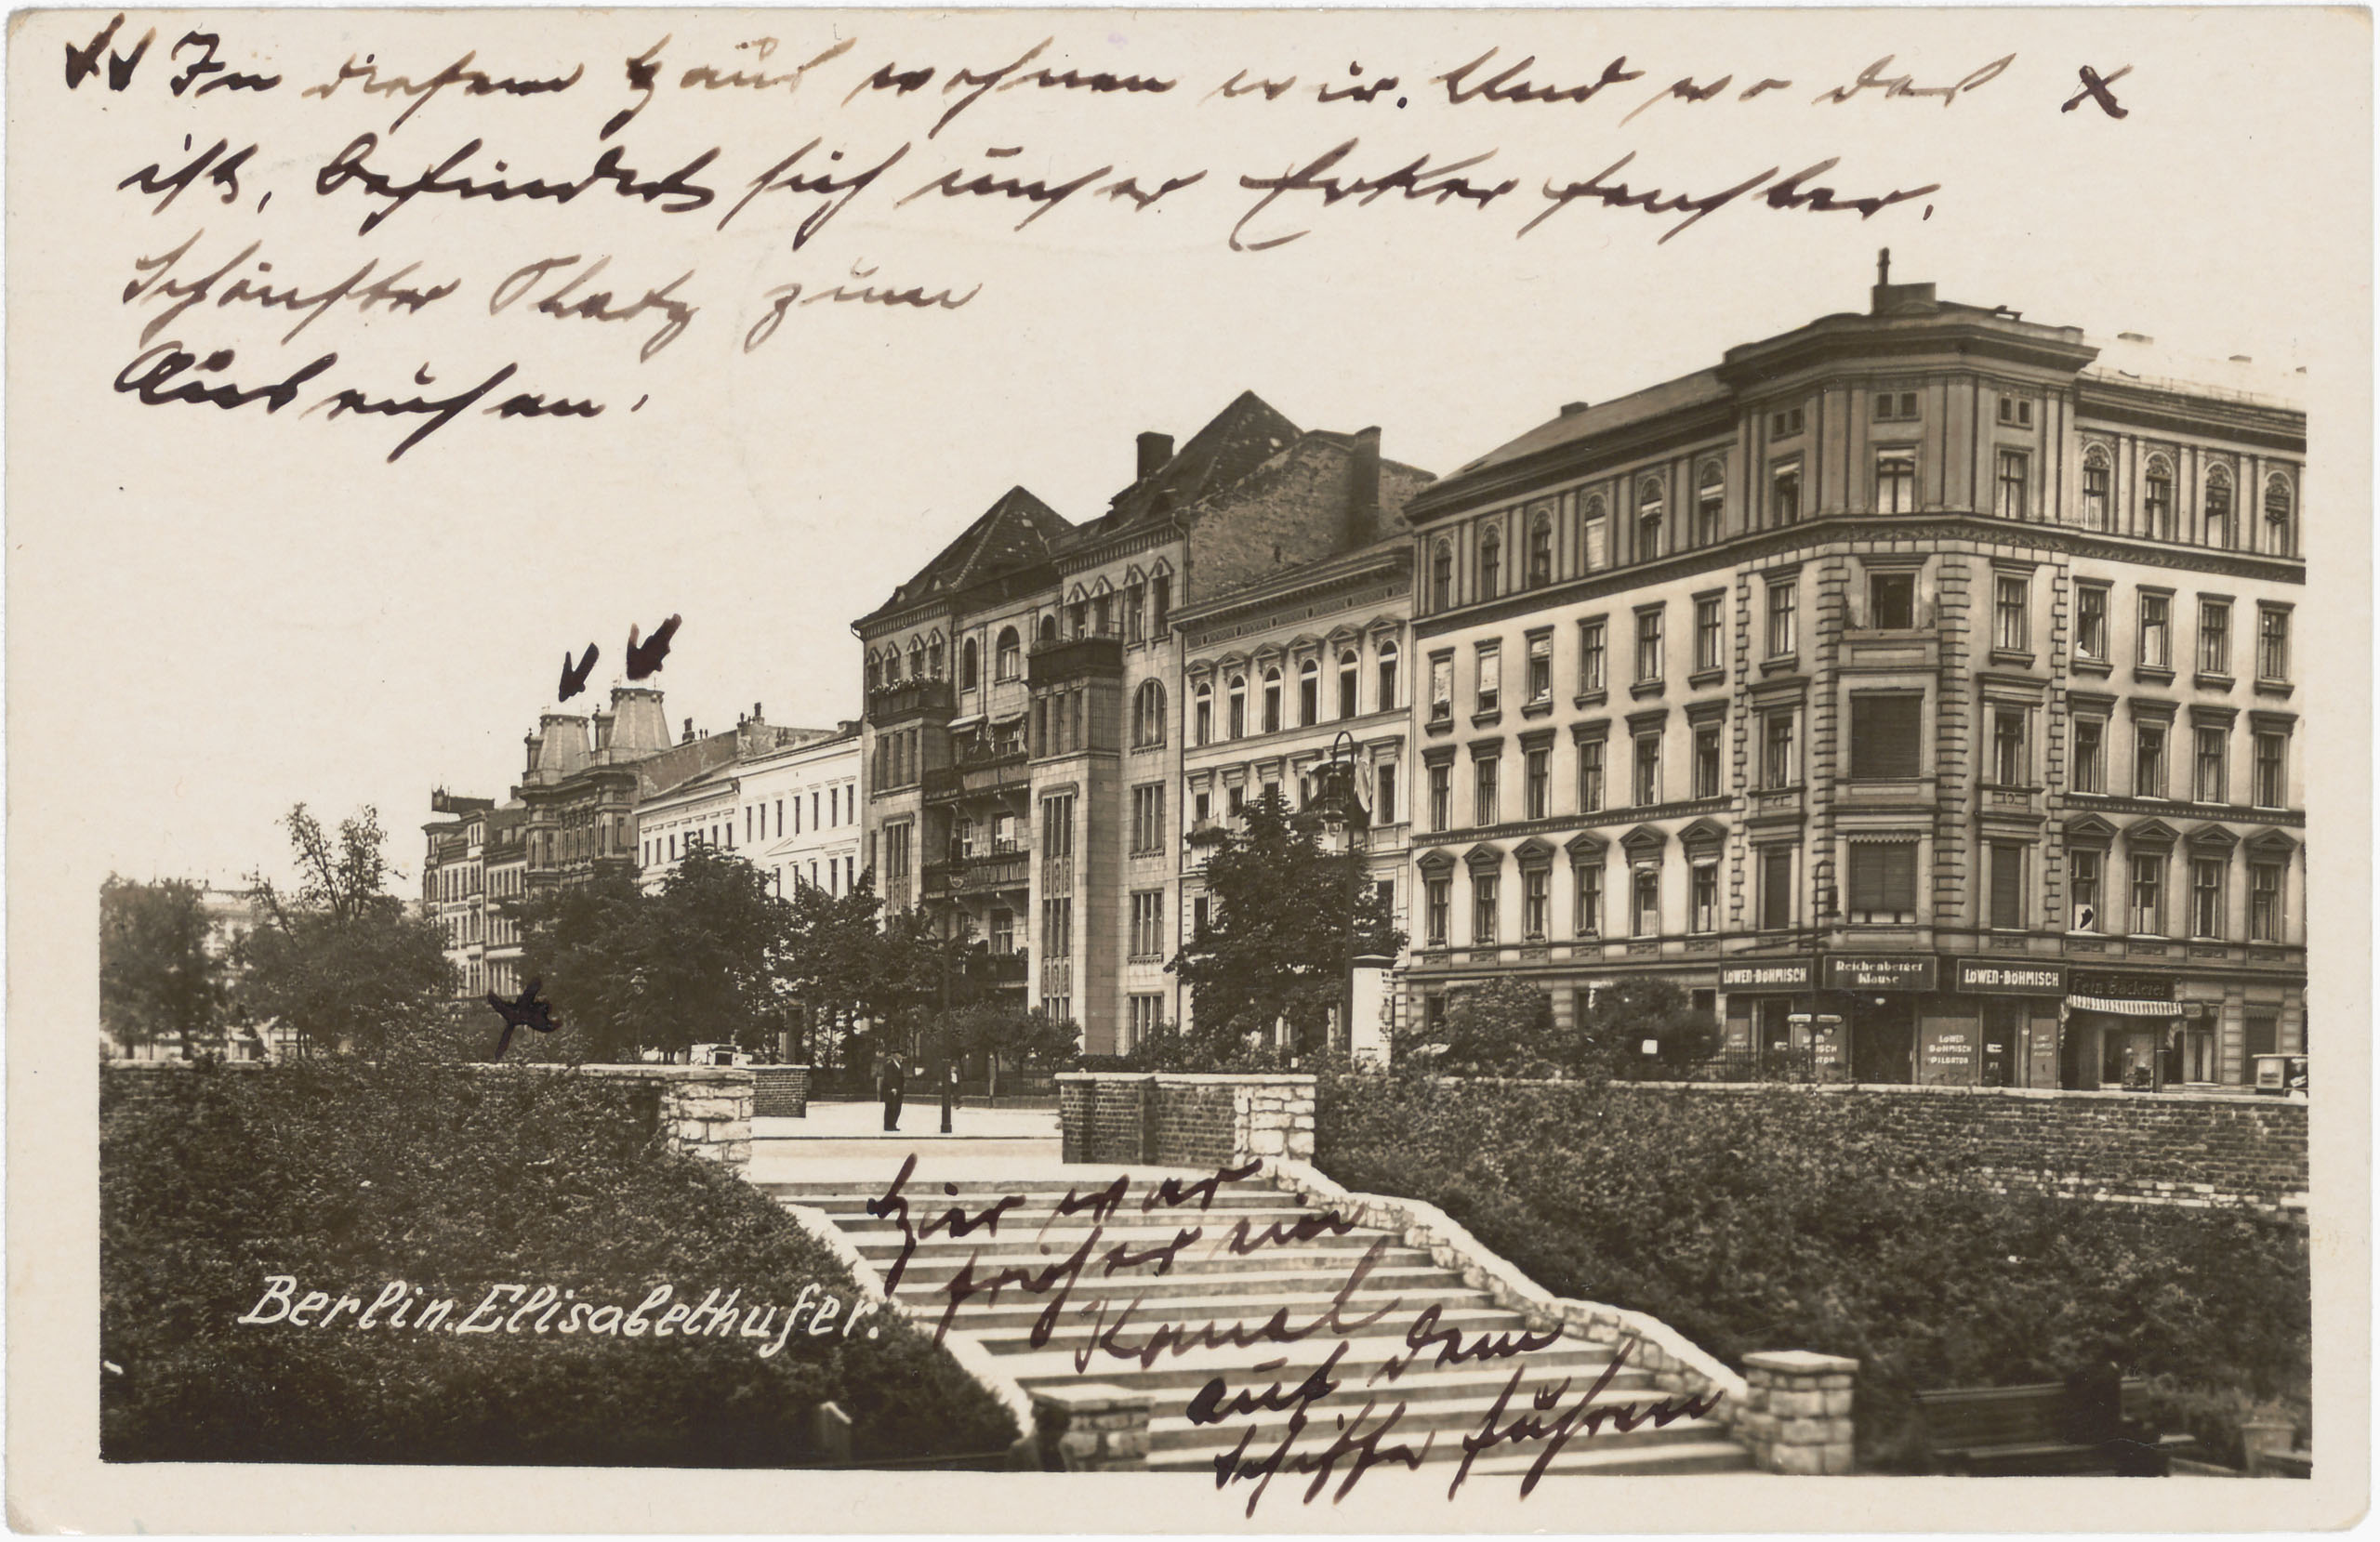 In diesem Haus wohnen wir. Und wo das x
ist, befindet sich unser Erkerfenster.
Schönster Platz zum
Ausruhen.
LÖWEN-BÖHMISCH
Reichenberger
Klause
LÖWEN-BÖHMISCH
Fein Bäckerei
LÖWEN
BÖHMISCH
PILSATOR
Hier war
früher ein
Kanal
auf dem
Schiffe fuhren
Berlin. Elisabethufer.